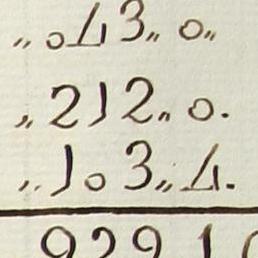 „043„0„
„212„0.
„103„4.